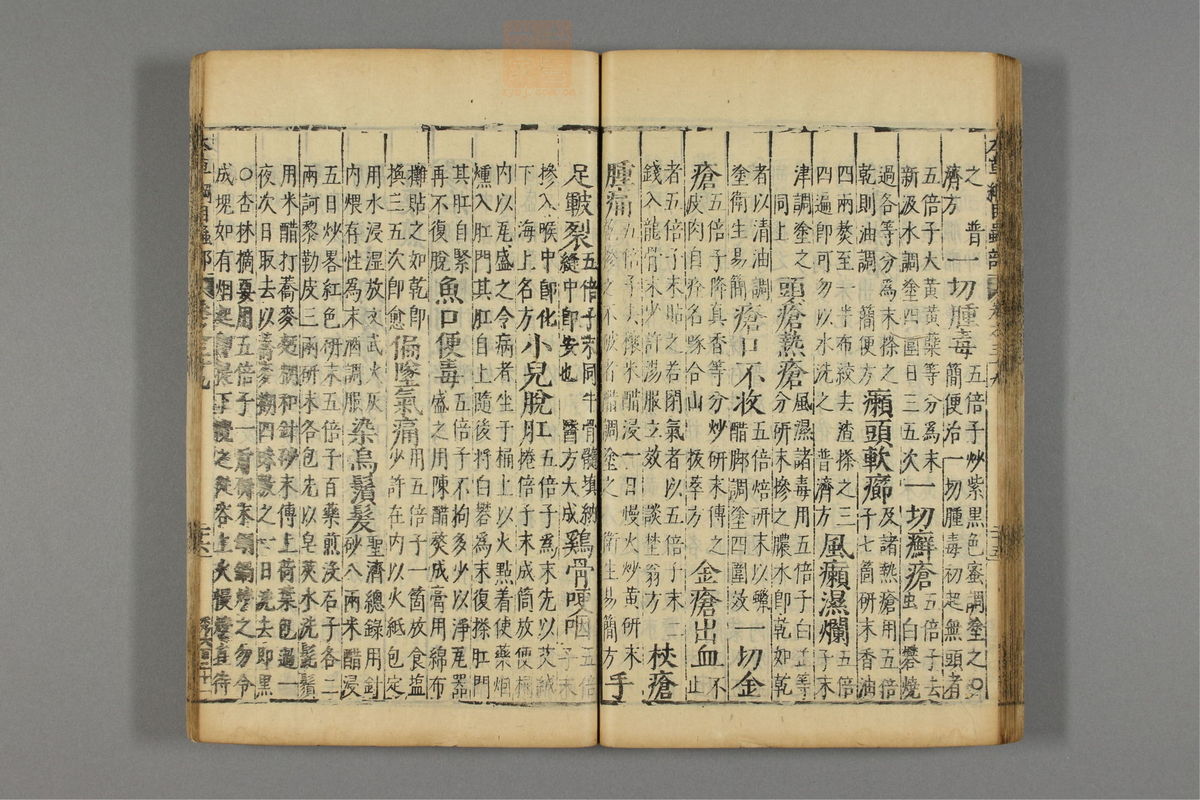 本草綱目蟲部
之 普一切腫毒五倍子炒紫黑色蜜調塗之○
濟方 簡便治一切腫毒初起無頭者
五倍子大黃黃蘗等分為末一切癬瘡五倍子去
新汲水調塗四圍日三五次 虫白礬燒
過各等分為末搽之癩頭軟癤及諸熱瘡用五倍
乾則油調 簡便方 子七箇研末香油
四兩熬至一半布絞去渣搽之三風癩濕爛五倍子末
四遍卽可勿以水洗之 普濟方
津調塗之頭瘡熱瘡風濕諸毒用五倍子白芷等
同上 分研末摻之膿水卽乾如乾
者以清油調瘡口不收五倍焙研末以蠟一切金
塗衛生易簡 醋脚調塗四圍效
瘡五倍子降真香等分炒研末傅之金瘡出血不止
皮肉自痊名啄合山 拔萃方
者五倍子末貼之若閉氣者以五倍子末二杖瘡
錢入龍骨末少許湯服立效 談埜翁方
腫痛五倍子去穰米醋浸一日慢火炒黃研末手
乾摻之不破者醋調塗之 衛生易簡方
足皸裂五倍子末同牛骨髓填納雞骨哽咽五倍
縫中卽安也 醫方大成 子末
摻入喉中卽化小兒脫肛五倍子為末先以艾絨
下 海上名方 捲倍子末成筒放便桶
內以瓦盛之令病者坐于桶上以火點着使藥烟
燻入肛門其肛自上隨後將白礬為末復搽肛門
其肛自緊魚口便毒五倍子不拘多少以淨瓦器
再不復脫 盛之用陳醋熬成膏用綿布
攤貼之如乾卽偏墜氣痛用五倍子一箇放食鹽
換三五次卽愈 少許在內以火紙包定
用水浸湿放文武火灰染烏鬚髮聖濟總錄用針
內煨存性為末酒調服 砂八兩米醋浸
五日炒畧紅色研末五倍子百藥煎沒石子各二
兩訶黎勒皮三兩研末各包先以皂莢水洗髭鬚
用米醋打蕎麥麪糊和針砂末傅上荷葉包過一
夜次日取去以蕎麥糊四味敷之一日洗去卽黑
○杏林摘要用五倍子一斤研末銅鍋炒之勿令
成塊如有烟起